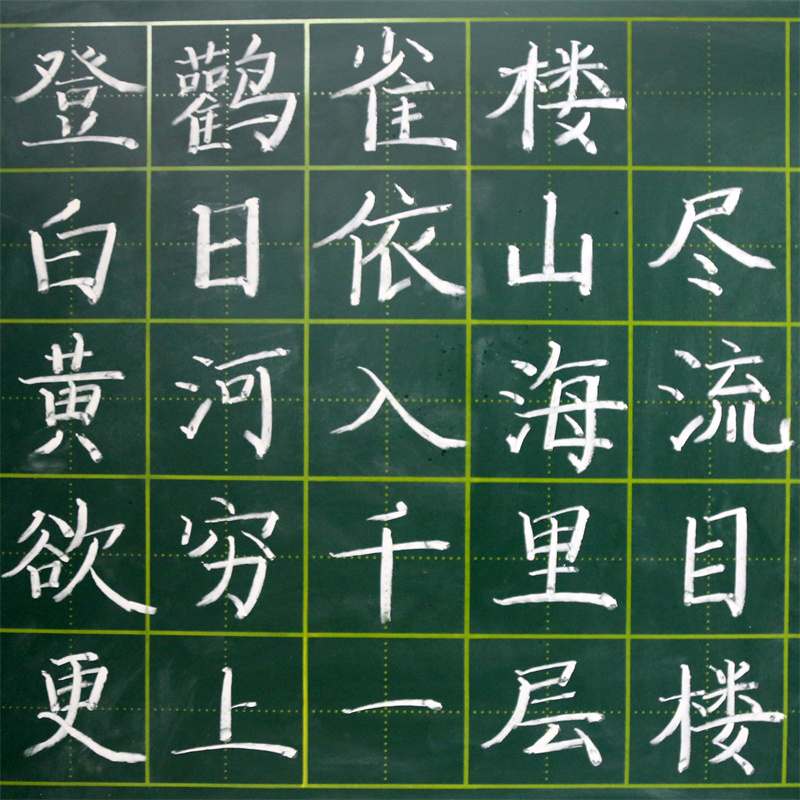 登鸛雀楼
白日依山尽
黄河入海流
欲穷千里目
更上一层楼